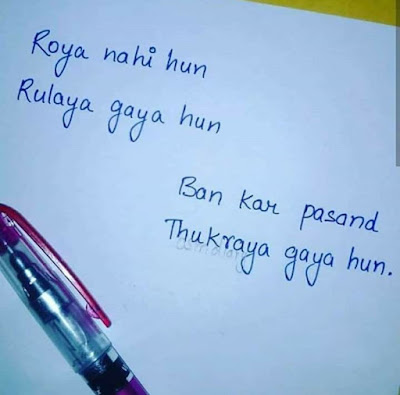 Roya nahi hun
Rulaya gaya hun
Ban kar pasand
Thukraya gaya hun.